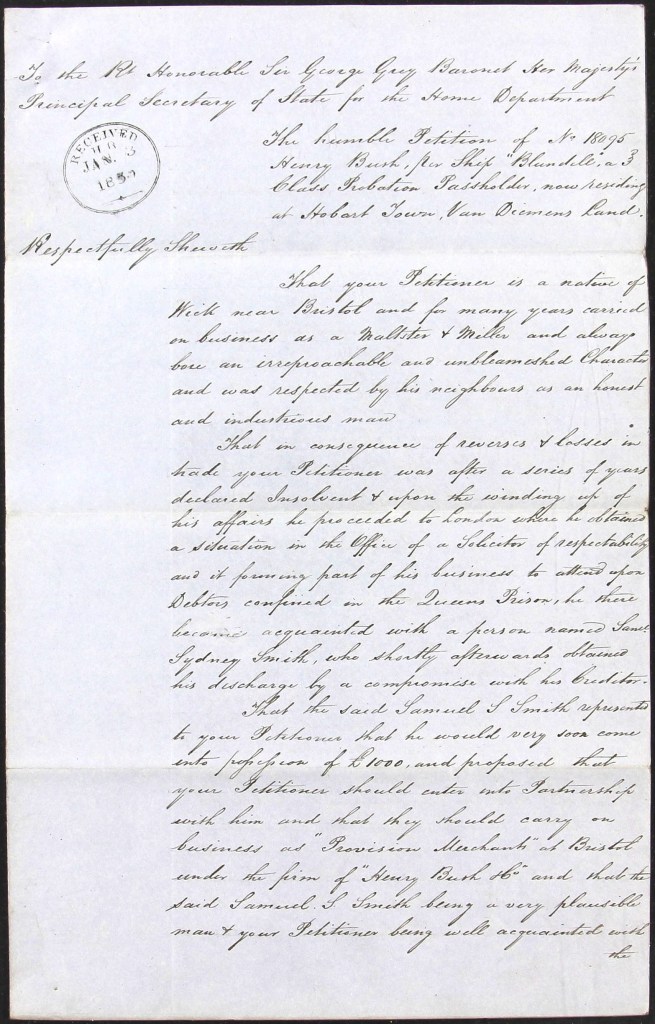 To the Rt Honorable Sir George Grey Baronet Her Majesty's
Principal Secretary of State for the Home Department
RECEIVED
JAN. 3
185
The humble Petition of No 18095
Henry Bush, per Ship "Blundell", a 3
Class Probation Passholder, now residing
at Hobart Town, Van Diemens Land.
Respectfully Sheweth
That your Petitioner is a native of
Wick near Bristol and for many years carried
on business as a Maltster & Miller and always
bore an irreproachable and unbleamished Character
and was respected by his neighbours as an honest
and industrious man
That in consequence of reverses & losses in
trade your Petitioner was after a series of years
declared Insolvent & upon the winding up of
his affairs he proceeded to London where he obtained
a situation in the Office of a Solicitor of respectability
and it forming part of his business to attend upon
Debtors confined in the Queens Prison, he there
became acquainted with a person named Saml
Sydney Smith, who shortly afterwards obtained
his discharge by a compromise with his Creditor.
That the said Samuel S Smith represented
to your Petitioner that he would very soon come
into possession of £1000, and proposed that
your Petitioner should enter into Partnership
with him and that they should carry on
business as "Provision Merchants" at Bristol
under the firm of "Henry Bush & Co" and that the
said Samuel. S Smith being a very plausible
man & your Petitioner being well acquainted with
the